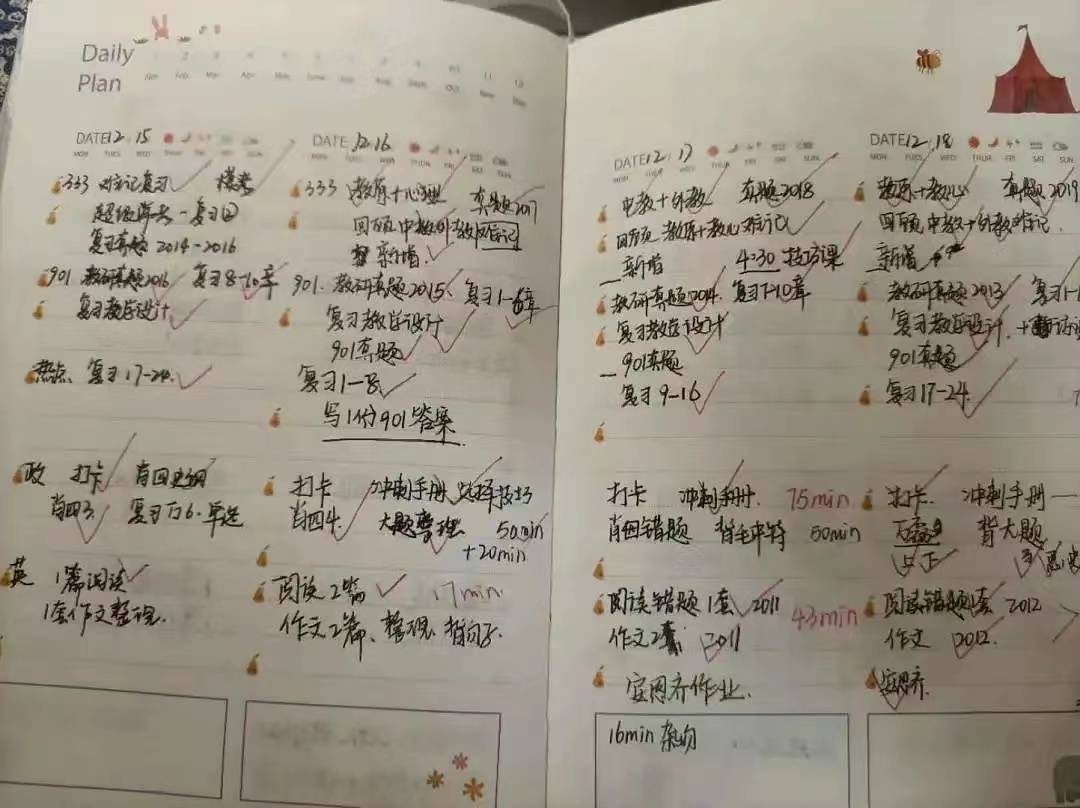 Daily
Plan
1 2 3 4 5 6 7 8 9 10 11 12
DATE 12.15
MON TUES WED THUR FRI SAT SUN
333 对标记复习 模考
复习真题 2014-2016
901 教研真题2016 复习8-10章
复习教学设计
热点 复习17-24
政 打卡 肖四史纲
肖四3 复习 单选
英 1篇阅读
1套作文整理
DATE 12.16
MON TUES WED THUR FRI SAT SUN
333 教原+心理 真题2017
回顾中教外教对标记
新增
901 教研真题2015 复习1-6章
复习教学设计
901真题
复习1-8
写1份901答案
打卡 冲刺手册 选择技巧
肖四4 大题整理 50min
+20min
阅读2篇 17min
作文2篇、整理、背句子
DATE 12.17
MON TUES WED THUR FRI SAT SUN
中教+外教 真题2018
回顾 教原+教心对标记
新增 4:30 技巧课
教研真题2014 复习7-10章
复习教学设计
901真题
复习9-16
打卡 冲刺手册 75min
肖四错题 背毛中特 50min
阅读错题1套 2011 43min
作文2 2011
作业
16min 杂物
DATE 12.18
MON TUES WED THUR FRI SAT SUN
教原+教心 真题2019
回顾中教+外教对标记
新增
教研真题2013 复习1-1
复习教学设计 +
901真题
复习17-24
打卡 冲刺手册
背大题
阅读错题1套 2012
作文 2012